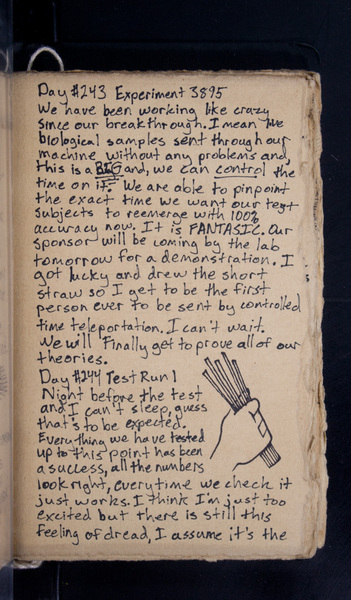 Day #243 Experiment 3895
We have been working like crazy
since our breakthrough. I mean live
biological samples sent through our
machine without any problems and,
this is a BIG and, we can control the
time on it. We are able to pinpoint
the exact time we want our test
subjects to reemerge with 100%
accuracy now. It is FANTASIC. Our
sponsor will be coming by the lab
tomorrow for a demonstration. I
got lucky and drew the short
straw so I get to be the first
person ever to be sent by controlled
time teleportation. I can't wait.
We will finally get to prove all of our
theories.
Day #244 Test Run 1
Night before the test
and I can't sleep, guess
that's to be expected.
Everything we have tested
up to this point has been
a success, all the numbers
look right, everytime we check it
just works. I think I'm just too
excited but there is still this
feeling of dread, I assume it's the